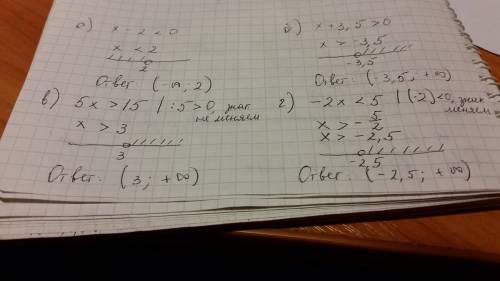 а) x - 2 < 0
x < 2
2
Ответ: (-∞; 2)
б) x + 3,5 > 0
x > -3,5
-3,5
Ответ: (-3,5; +∞)
в) 5x > 15 | :5 > 0, знак
не меняем
x > 3
3
Ответ: (3; +∞)
г) -2x < 5 | (:-2) < 0, знак
меняем
x > -5/2
x > -2,5
-2,5
Ответ: (-2,5; +∞)